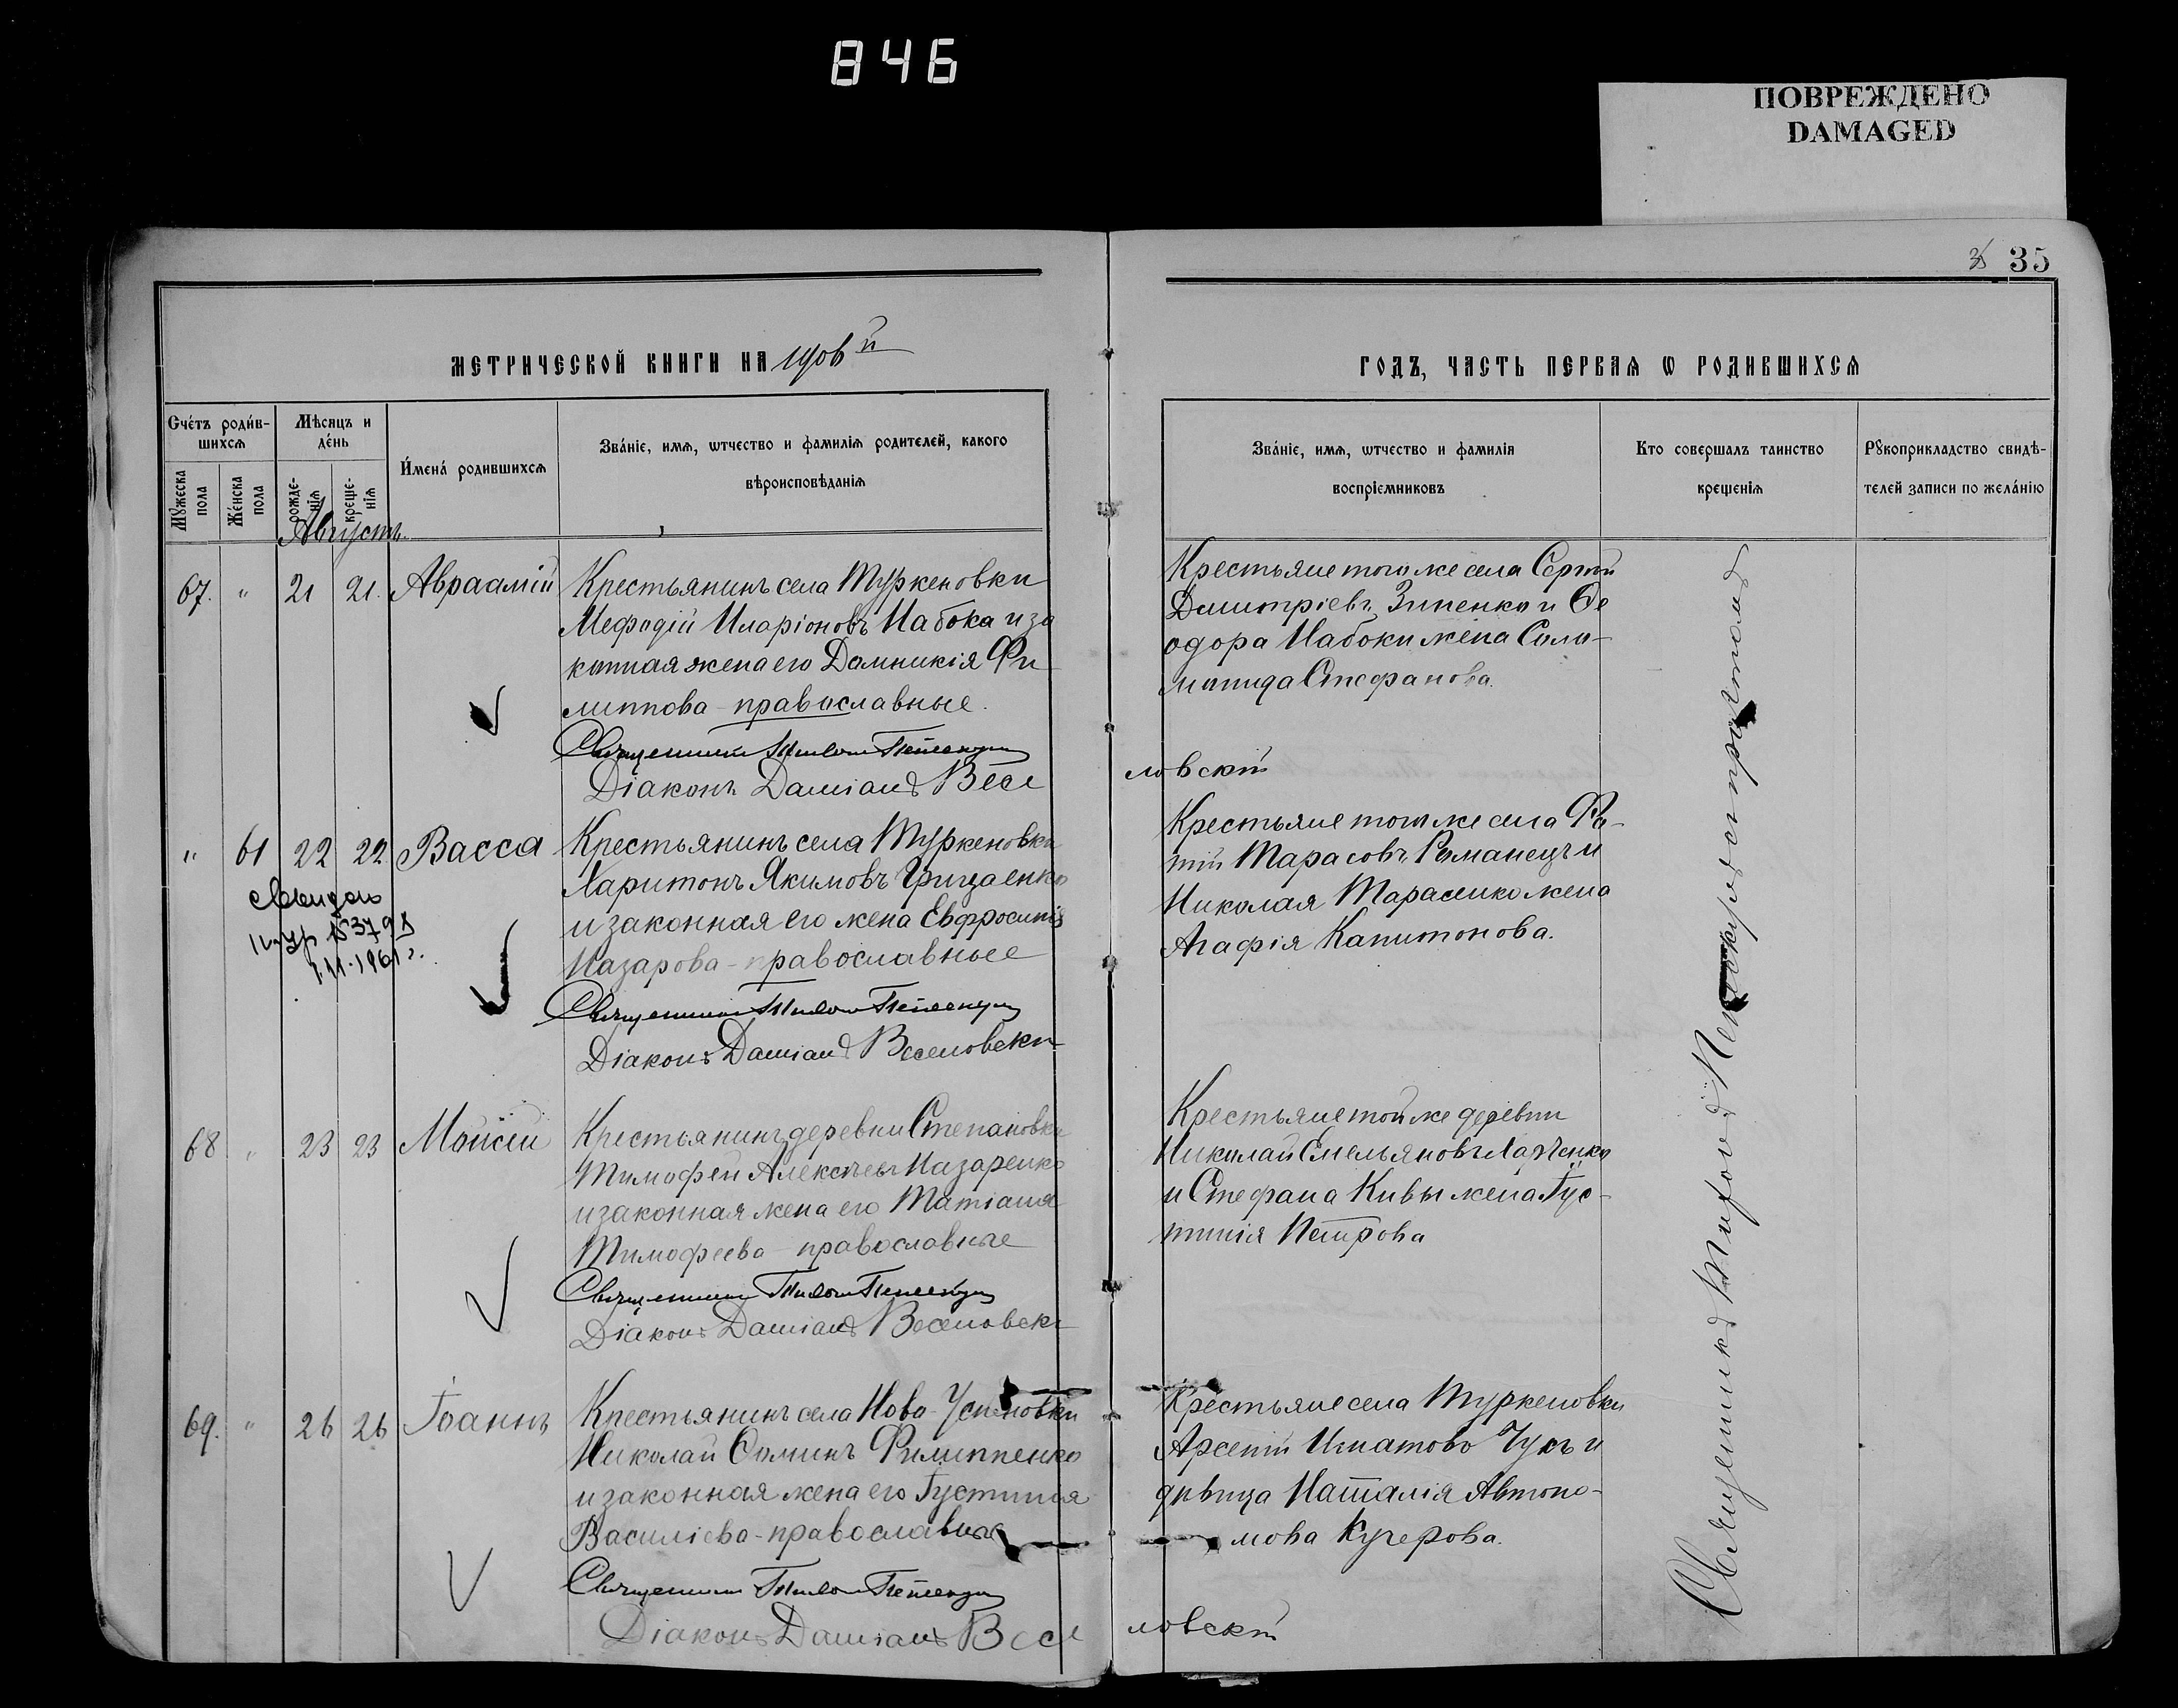 846
ПОВРЕЖДЕНО
DAMAGED
35
МЕТРИЧЕСКОЙ КНИГИ НА 1906й
ГОДЪ, ЧАСТЬ ПЕРВАЯ Ѡ РОДИВШИХСЯ
Счётъ роди́в-
шихся
Мѣсяцъ и
де́нь
И́мена́ родившихся
Зва́нїе, имя, ѡтчество и фамилїя родителей, какого
вѣроисповѣданїя
Мꙋжеска
пола
Же́нска
пола
рожде-
нїя
креще-
нїя
Зва́нїе, имя, ѡтчество и фамилїя
воспрїемниковъ
Кто совершалъ таинство
крещенїя
Рꙋкоприкладство свидѣ-
телей записи по жела́нїю
Августъ
67. " 21 21. Авраамій
Крестьянинъ села Туркеновки
Мефодій Иларіоновъ Набока и за
конная жена его Домникія Фи
липпова - православные.
Священникъ
Діаконъ Даміанъ Весе
ловскій
Крестьяне того же села Сергій
Димитріевъ Зиненко и Ѳе
одора Набоки жена Соло-
монида Стефанова.
" 61 22 22 Васса
Крестьянинъ села Туркеновки
Харитонъ Якимовъ Грицаенко
и законная его жена Евфросинія
Назарова - православные
Священникъ
Діаконъ Даміанъ Веселовски
№ 379
1.11.1961 г.
Крестьяне того же села Фо-
тій Тарасовъ Романецъ и
Николая Тарасенко жена
Агафія Капитонова.
68 " 23 23 Моисей
Крестьянинъ деревни Степановки
Тимофей Алексѣевъ Назаренко
и законная жена его Татіана
Тимофеева - православные
Священникъ
Діаконъ Даміанъ Веселовски
Крестьяне той же деревни
Николай Емельяновъ Харченко
и Стефана Кивы жена Іус-
тинія Петрова
69. " 26 26 Іоаннъ
Крестьянинъ села Ново-Успеновки
Николай Ѳоминъ Филиппенко
и законная жена его Іустинія
Василіева - православные
Священникъ
Діаконъ Даміанъ Весе
ловскій
Крестьяне села Туркеновки
Арсеній Игнатово Чусъ и
дѣвица Наталія Автоно-
мова Кучерова.
Священникъ